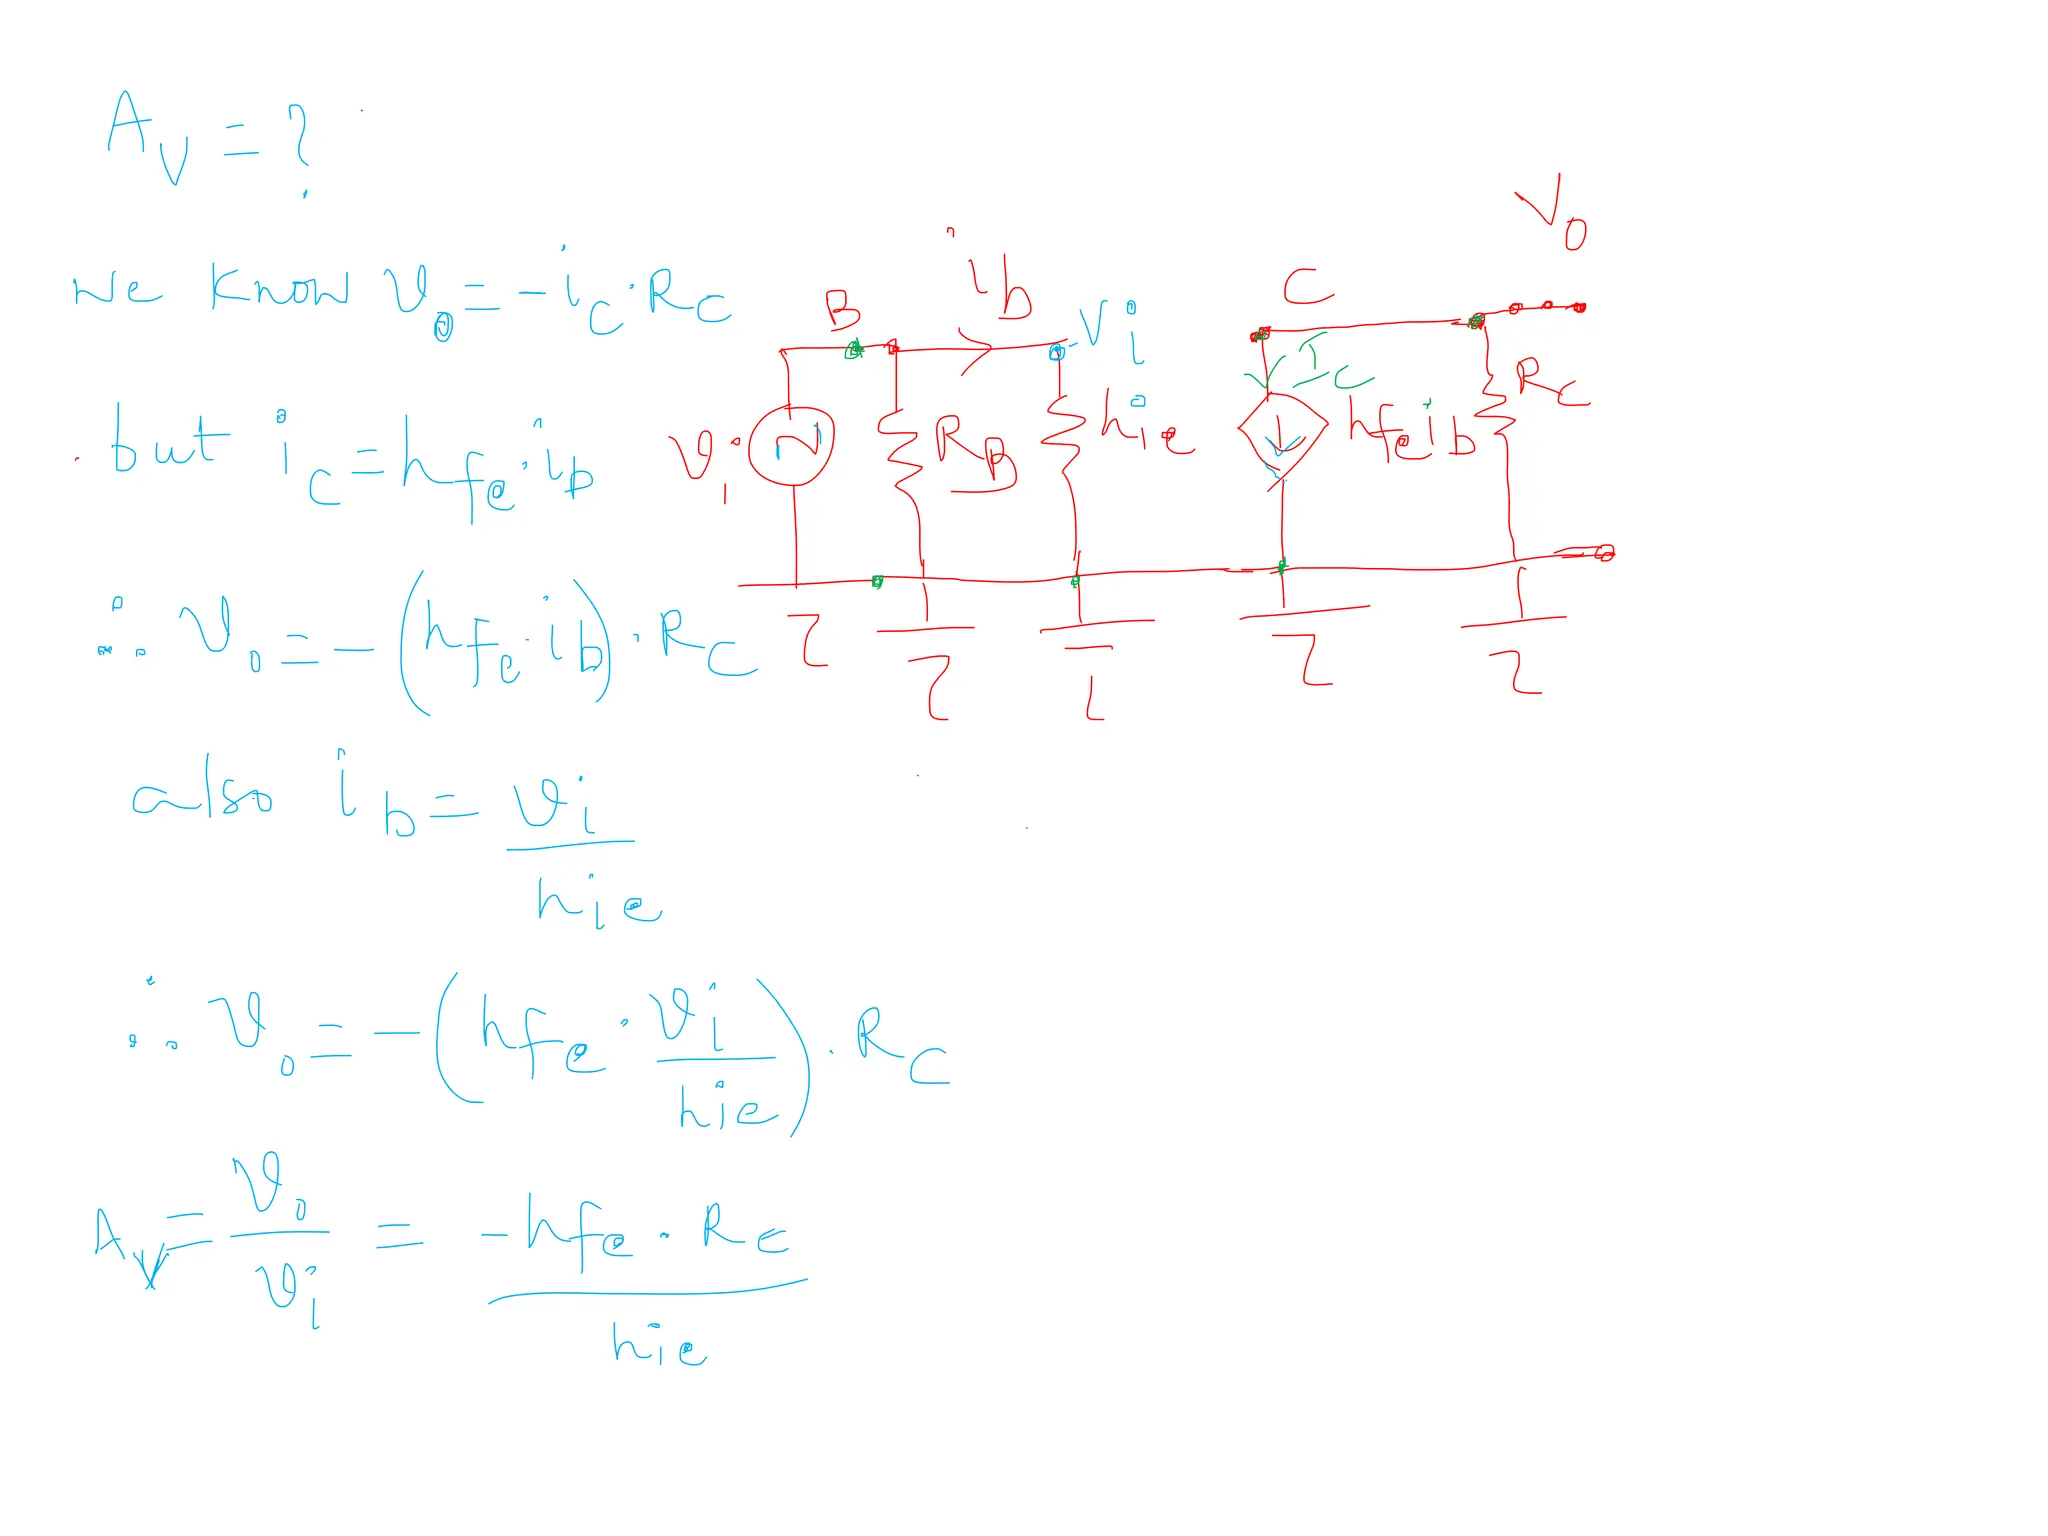 A_V = ?
We know v_o = - i_c · R_C
but i_C = h_fe · i_b
∴ v_o = - (h_fe · i_b) · R_C
also i_b = v_i / h_ie
∴ v_o = - (h_fe · v_i / h_ie) · R_C
A_V = v_o / v_i = - h_fe · R_C / h_ie
V_o
i_b
B
V_i
C
I_C
R_C
v_i
R_B
h_ie
h_fe i_b